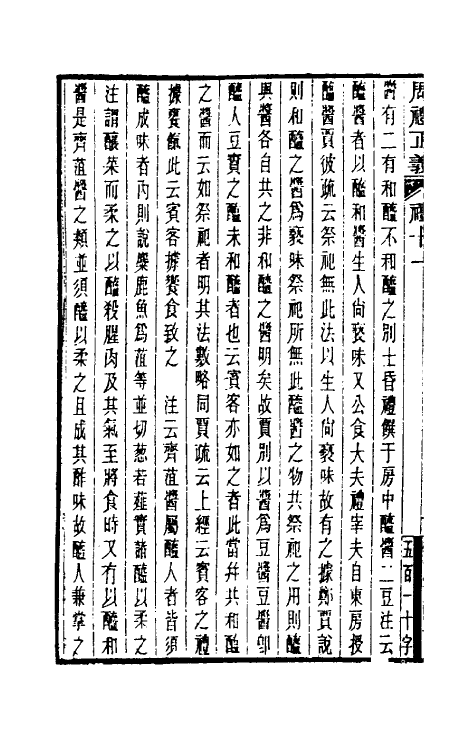 周禮正義
五百一十字
醬有二有和醯不和醯之別士昏禮饌于房中醯醬二豆注云
醯醬者以醯和醬生人尙褻味又公食大夫禮宰夫自東房授
醯醬賈彼疏云祭祀無此法以生人尙褻味故有之據鄭賈說
則和醯之醬爲褻味祭祀所無此醯醬之物共祭祀之用則醯
與醬各自共之非和醯之醬明矣故賈別以醬爲豆醬豆醬卽
醢人豆實之醢未和醯者也云賓客亦如之者此當幷共和醯
之醬而云如祭祀者明其法數略同賈疏云上經云賓客之禮
據饔餼此云賓客據饗食致之　注云齊菹醬屬醯人者皆須
醯成味者內則說麋鹿魚爲菹等並切葱若薤實諸醯以柔之
注謂釀菜而柔之以醯殺腥肉及其氣至將食時又有以醯和
醬是齊菹醬之類並須醯以柔之且成其酢味故醯人兼掌之